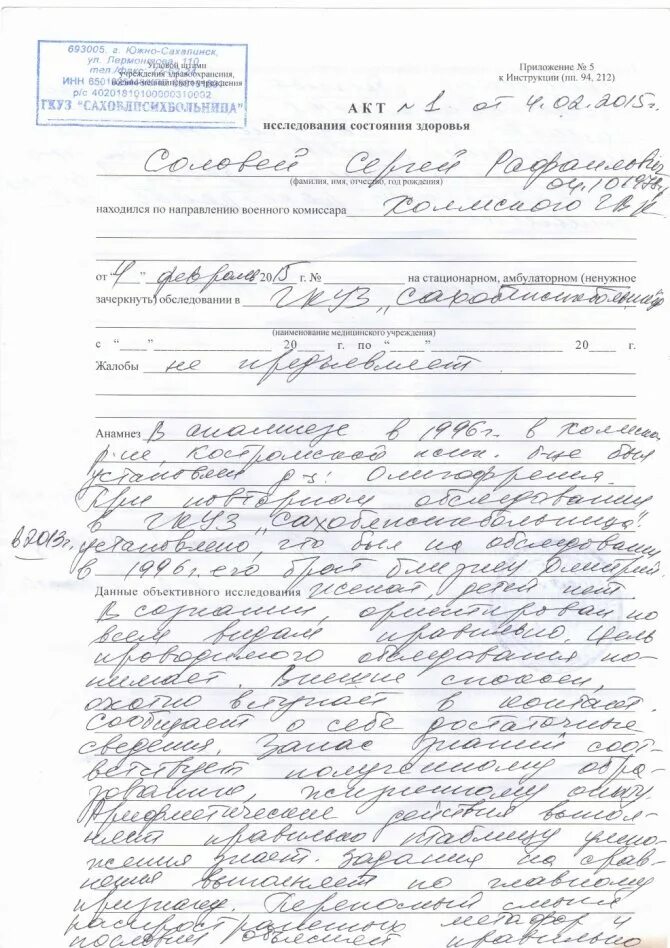 693005, г. Южно-Сахалинск,
ул. Лермонтова, 110
Угловой штамп
учреждения здравоохранения,
военно-медицинского учреждения
р/с 40201810100000310002
ГКУЗ "САХОБЛПСИХБОЛЬНИЦА"
Приложение № 5
к Инструкции (пп. 94, 212)
АКТ № 1 от 4.02.2015г.
исследования состояния здоровья
Соловей Сергей Рафаилович
(фамилия, имя, отчество, год рождения)
04.10.1978г.
находился по направлению военного комиссара Холмского ГВК
от "4" февраля 2015 г. № на стационарном, амбулаторном (ненужное
зачеркнуть) обследовании в ГКУЗ "Сахоблпсихбольница"
(наименование медицинского учреждения)
с " " 20 г. по " " 20 г.
Жалобы не предъявляет
Анамнез В анамнезе в 1996г. в
р-не, Костромской псих. б-це был
установлен д-з: Олигофрения.
При повторном обследовании
в ГКУЗ "Сахоблпсихбольница"
в 2013г. установлено, что был на обследовании
в 1996г. его брат близнец Дмитрий.
Данные объективного исследования женат, детей нет.
В сознании, ориентирован во
всем видам правильно. Цель
проводимого обследования по-
нимает. Внешне спокоен,
охотно вступает в контакт.
Сообщает о себе достаточные
сведения. Запас знаний соот-
ветствует полученному обра-
зованию, жизненному опыту.
Арифметические действия выпол-
няет правильно таблицу умно-
жения знает. Задания на срав-
нения выполняет по главному
признаку. Переносный смысл
распространенных метафор и
пословиц объясняет правильно